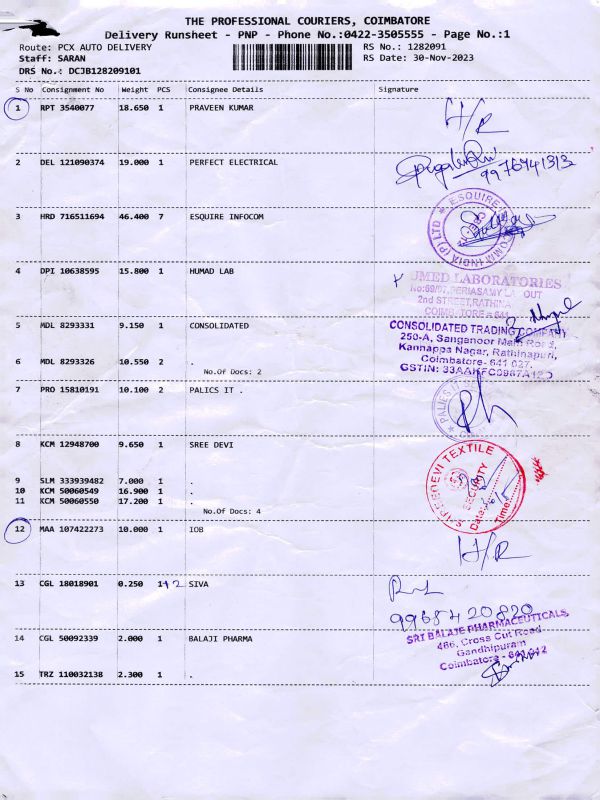 THE PROFESSIONAL COURIERS, COIMBATORE
Delivery Runsheet - PNP - Phone No.:0422-3505555 - Page No.:1
Route: PCX AUTO DELIVERY RS No.: 1282091
Staff: SARAN RS Date: 30-Nov-2023
DRS No.: DCJB128209101
S No Consignment No Weight PCS Consignee Details Signature
1 RPT 3540077 18.650 1 PRAVEEN KUMAR
H/R
2 DEL 121090374 19.000 1 PERFECT ELECTRICAL
9976941313
3 HRD 716511694 46.400 7 ESQUIRE INFOCOM
4 DPI 10638595 15.800 1 HUMAD LAB
UMED LABORATORIES
2nd STREET, RATHINA
COIMBATORE - 641
5 MDL 8293331 9.150 1 CONSOLIDATED
CONSOLIDATED TRADING COMPANY
250-A, Sanganoor Main Road,
Kannappa Nagar, Rathinapuri,
Coimbatore- 641 027.
6 MDL 8293326 10.550 2 .
No.Of Docs: 2
7 PRO 15810191 10.100 2 PALICS IT .
8 KCM 12948700 9.650 1 SREE DEVI
SREEDEVI TEXTILE
SECURITY
Date:
Time:
9 SLM 333939482 7.000 1 .
10 KCM 50060549 16.900 1 .
11 KCM 50060550 17.200 1 .
No.Of Docs: 4
12 MAA 107422273 10.000 1 IOB
H/R
13 CGL 18018901 0.250 1+2 SIVA
9968420820
14 CGL 50092339 2.000 1 BALAJI PHARMA
SRI BALAJE PHARMACEUTICALS
486, Cross Cut Road
Gandhipuram
Coimbatore - 641 012
15 TRZ 110032138 2.300 1 .